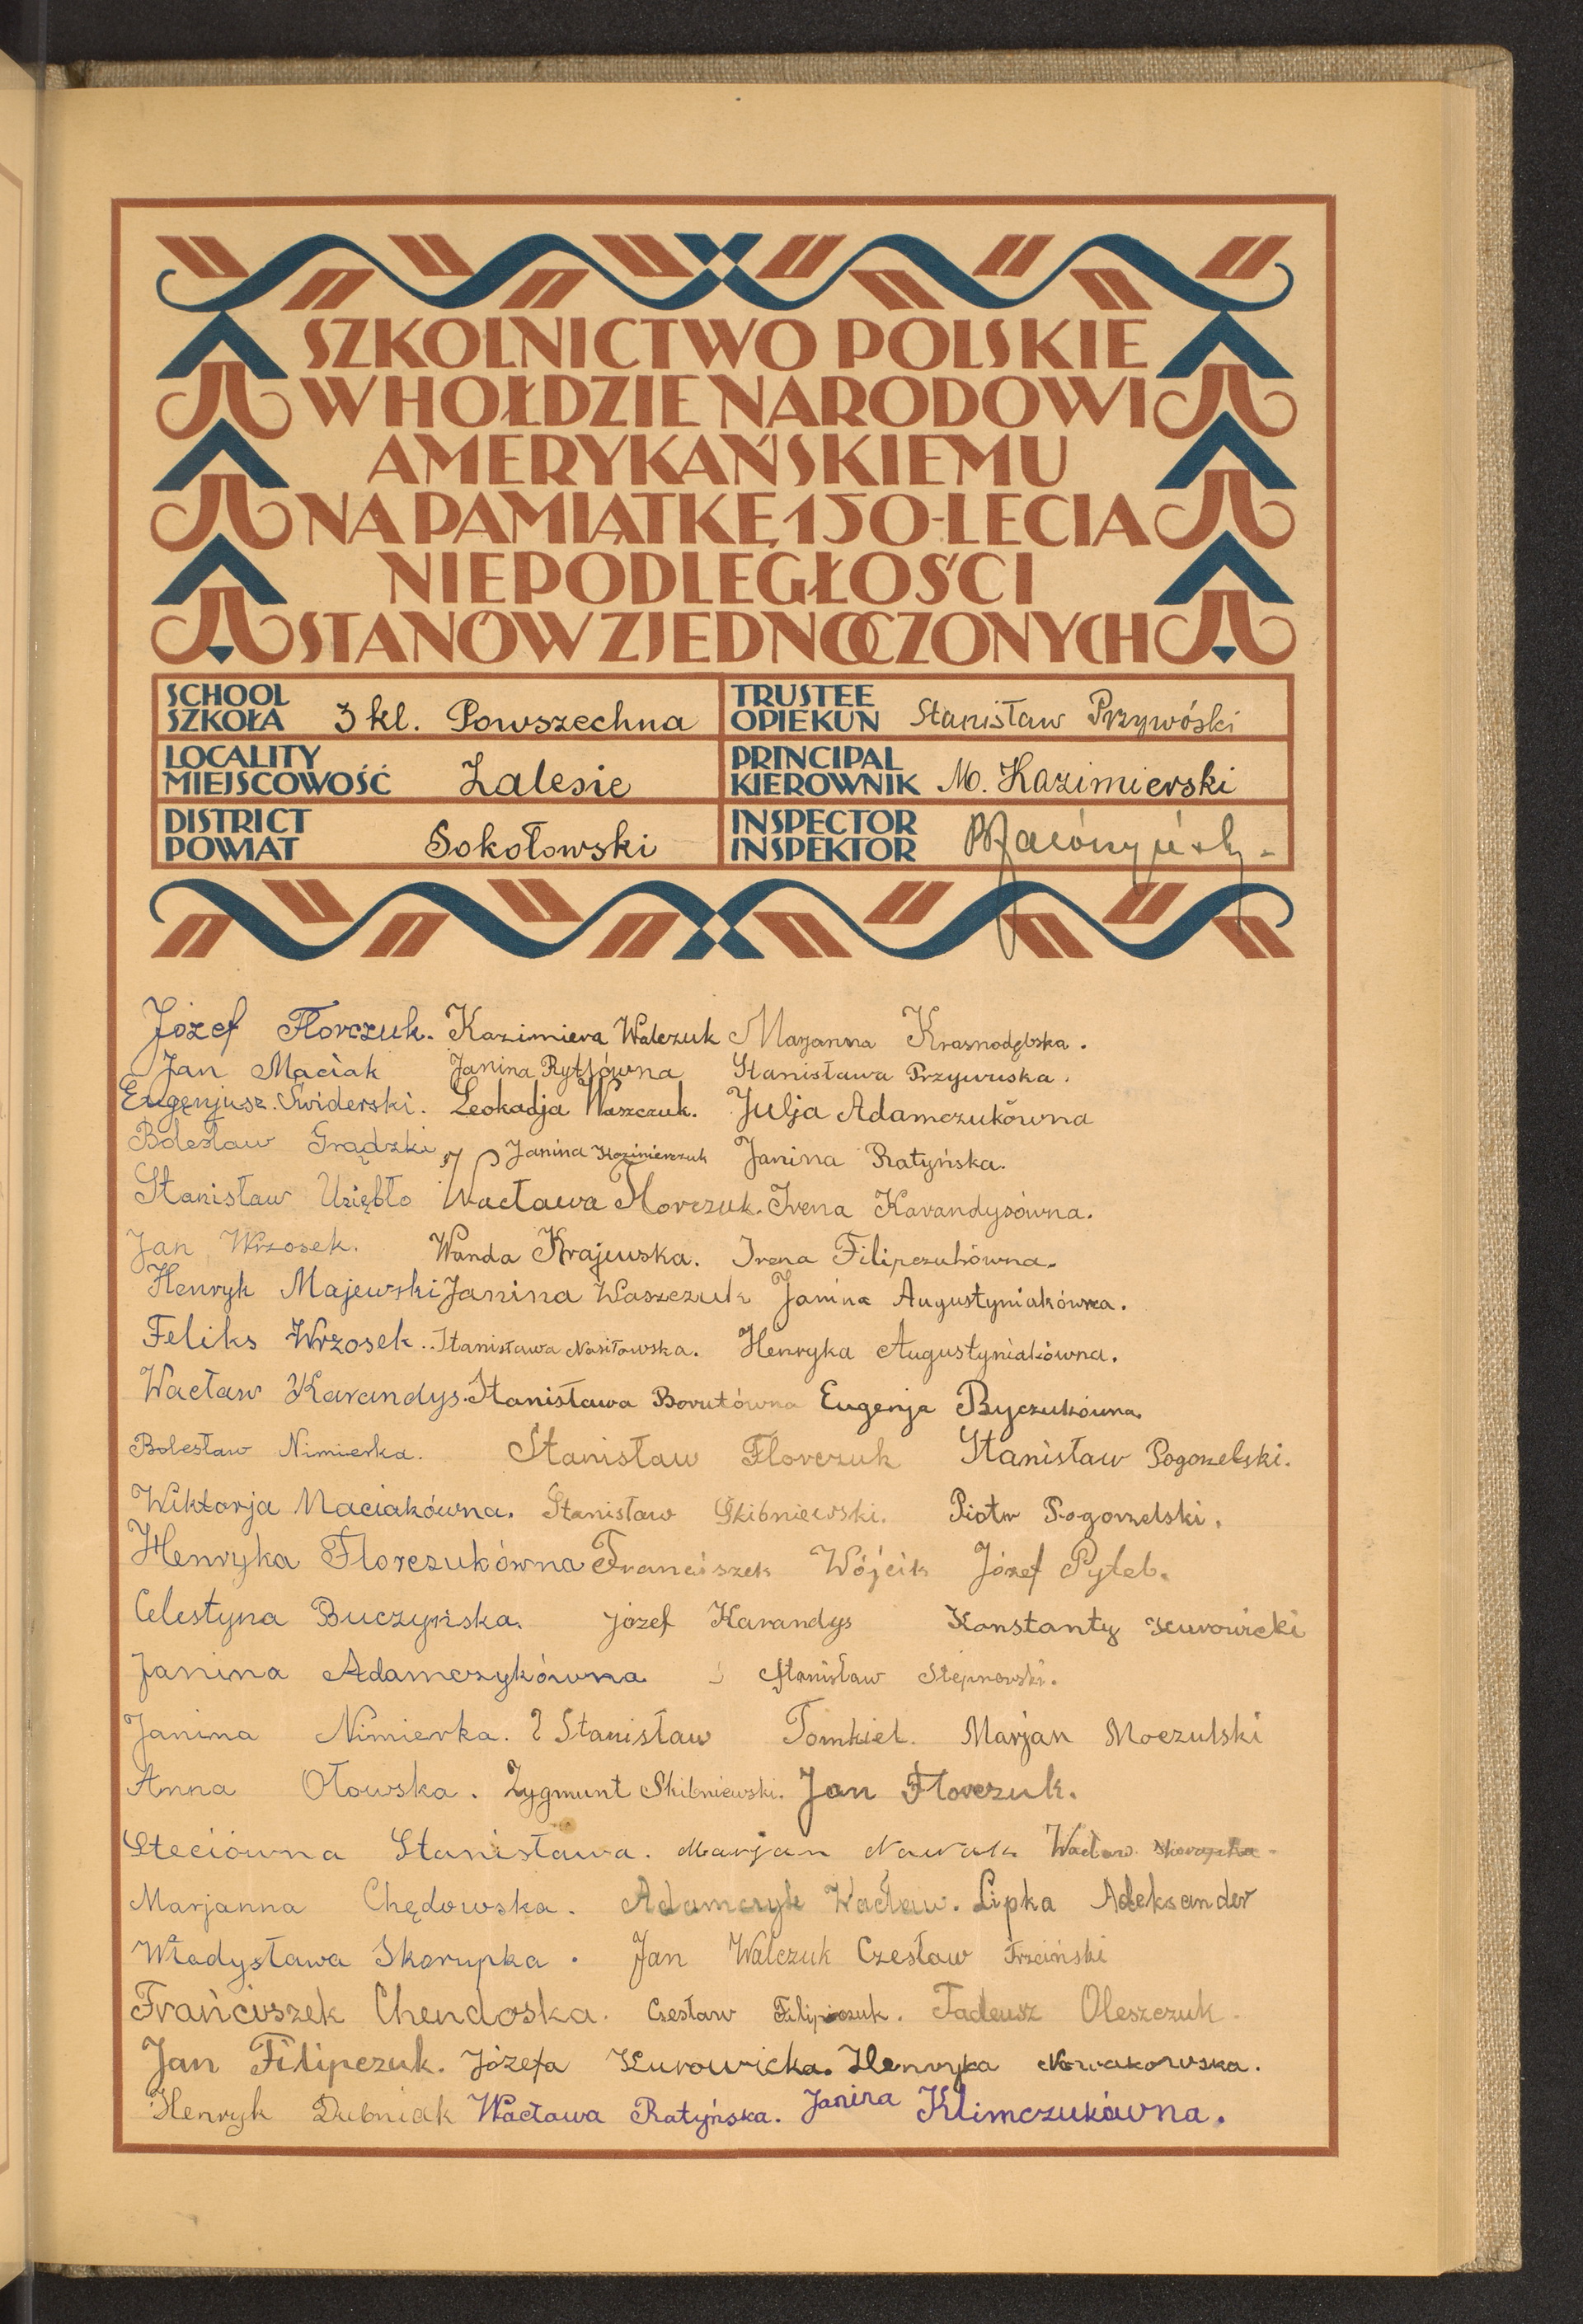 SZKOLNICTWO POLSKIE
W HOŁDZIE NARODOWI
AMERYKAŃSKIEMU
NA PAMIĄTKĘ 150-LECIA
NIEPODLEGŁOŚCI
STANÓW ZJEDNOCZONYCH
SCHOOL SZKOŁA 3 kl. Powszechna TRUSTEE OPIEKUN Stanisław Przywóski
LOCALITY MIEJSCOWOŚĆ Zalesie PRINCIPAL KIEROWNIK M. Kazimierski
DISTRICT POWIAT Sokołowski INSPECTOR INSPEKTOR
Józef Florczuk. Kazimiera Walczuk Maryanna Krasnodębska.
Jan Maciak Janina Rytlówna Stanisława Przywuska.
Eugenjusz. Świderski. Leokadja Waszczuk. Julja Adamczukówna
Bolesław Grądzki Janina Kazimierczuk Janina Ratyńska.
Stanisław Uziębło Wacława Florczuk. Irena Karandysówna.
Jan Wrzosek. Wanda Krajewska. Irena Filipczukówna.
Henryk Majewski Janina Waszczuk Janina Augustyniakówna.
Feliks Wrzosek.. Stanisława Nasiłowska. Henryka Augustyniakówna.
Wacław Karandys. Stanisława Borutówna Eugenja Byczukówna.
Bolesław Nimierka. Stanisław Florczuk Stanisław Pogorzelski.
Wiktorja Maciakówna. Stanisław Skibniewski. Piotr Pogorzelski.
Henryka Florczukówna Franciszek Wójcik Józef Pytel.
Celestyna Buczyńska. Józef Karandys Konstanty Kurowicki
Janina Adamczykówna Stanisław Stepnowski.
Janina Nimierka. Stanisław Tomkiel. Marjan Moczulski
Anna Ołowska. Zygmunt Skibniewski. Jan Florczuk.
Steciówna Stanisława. Marjan Nawak Wacław. Skorupka.
Marjanna Chędowska. Adamczyk Wacław. Lipka Aleksander
Władysława Skorupka. Jan Walczuk Czesław Trzciński
Franciszek Chendoska. Czesław Filipczuk. Tadeusz Oleszczuk.
Jan Filipczuk. Józefa Kurowicka. Henryka Nowakowska.
Henryk Dubniak Wacława Ratyńska. Janina Klimczukówna.